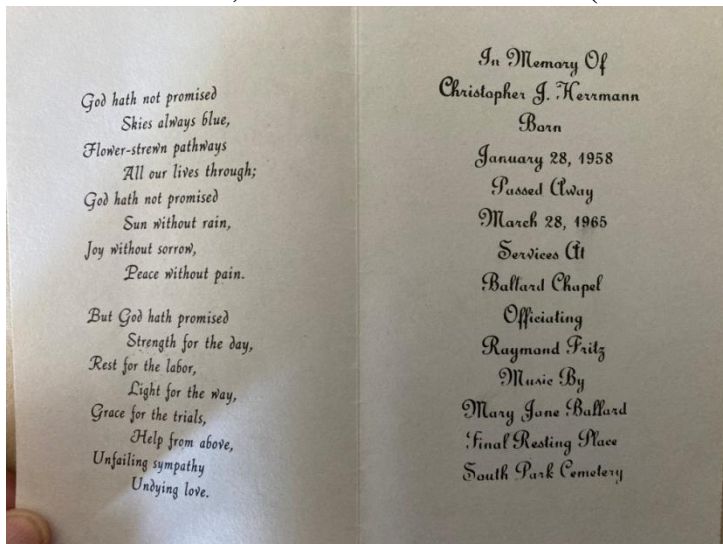 God hath not promised
Skies always blue,
Flower-strewn pathways
All our lives through;
God hath not promised
Sun without rain,
Joy without sorrow,
Peace without pain.
But God hath promised
Strength for the day,
Rest for the labor,
Light for the way,
Grace for the trials,
Help from above,
Unfailing sympathy
Undying love.
In Memory Of
Christopher J. Herrmann
Born
January 28, 1958
Passed Away
March 28, 1965
Services At
Ballard Chapel
Officiating
Raymond Fritz
Music By
Mary Jane Ballard
Final Resting Place
South Park Cemetery